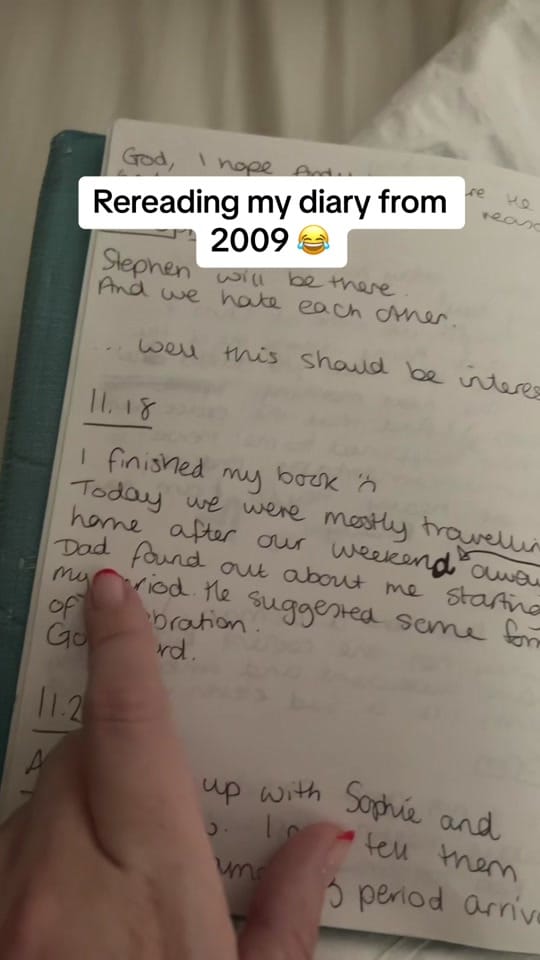 God, I hope
re He
reaso
Rereading my diary from
2009 😂
Stephen will be there.
And we hate each other.
... well this should be interes
11.18
I finished my book :(
Today we were mostly travellin
home after our weekend away
Dad found out about me starting
my period. He suggested some for
of bration.
Go rd.
11.2
A up with Sophie and
o. I tell them
my period arriv